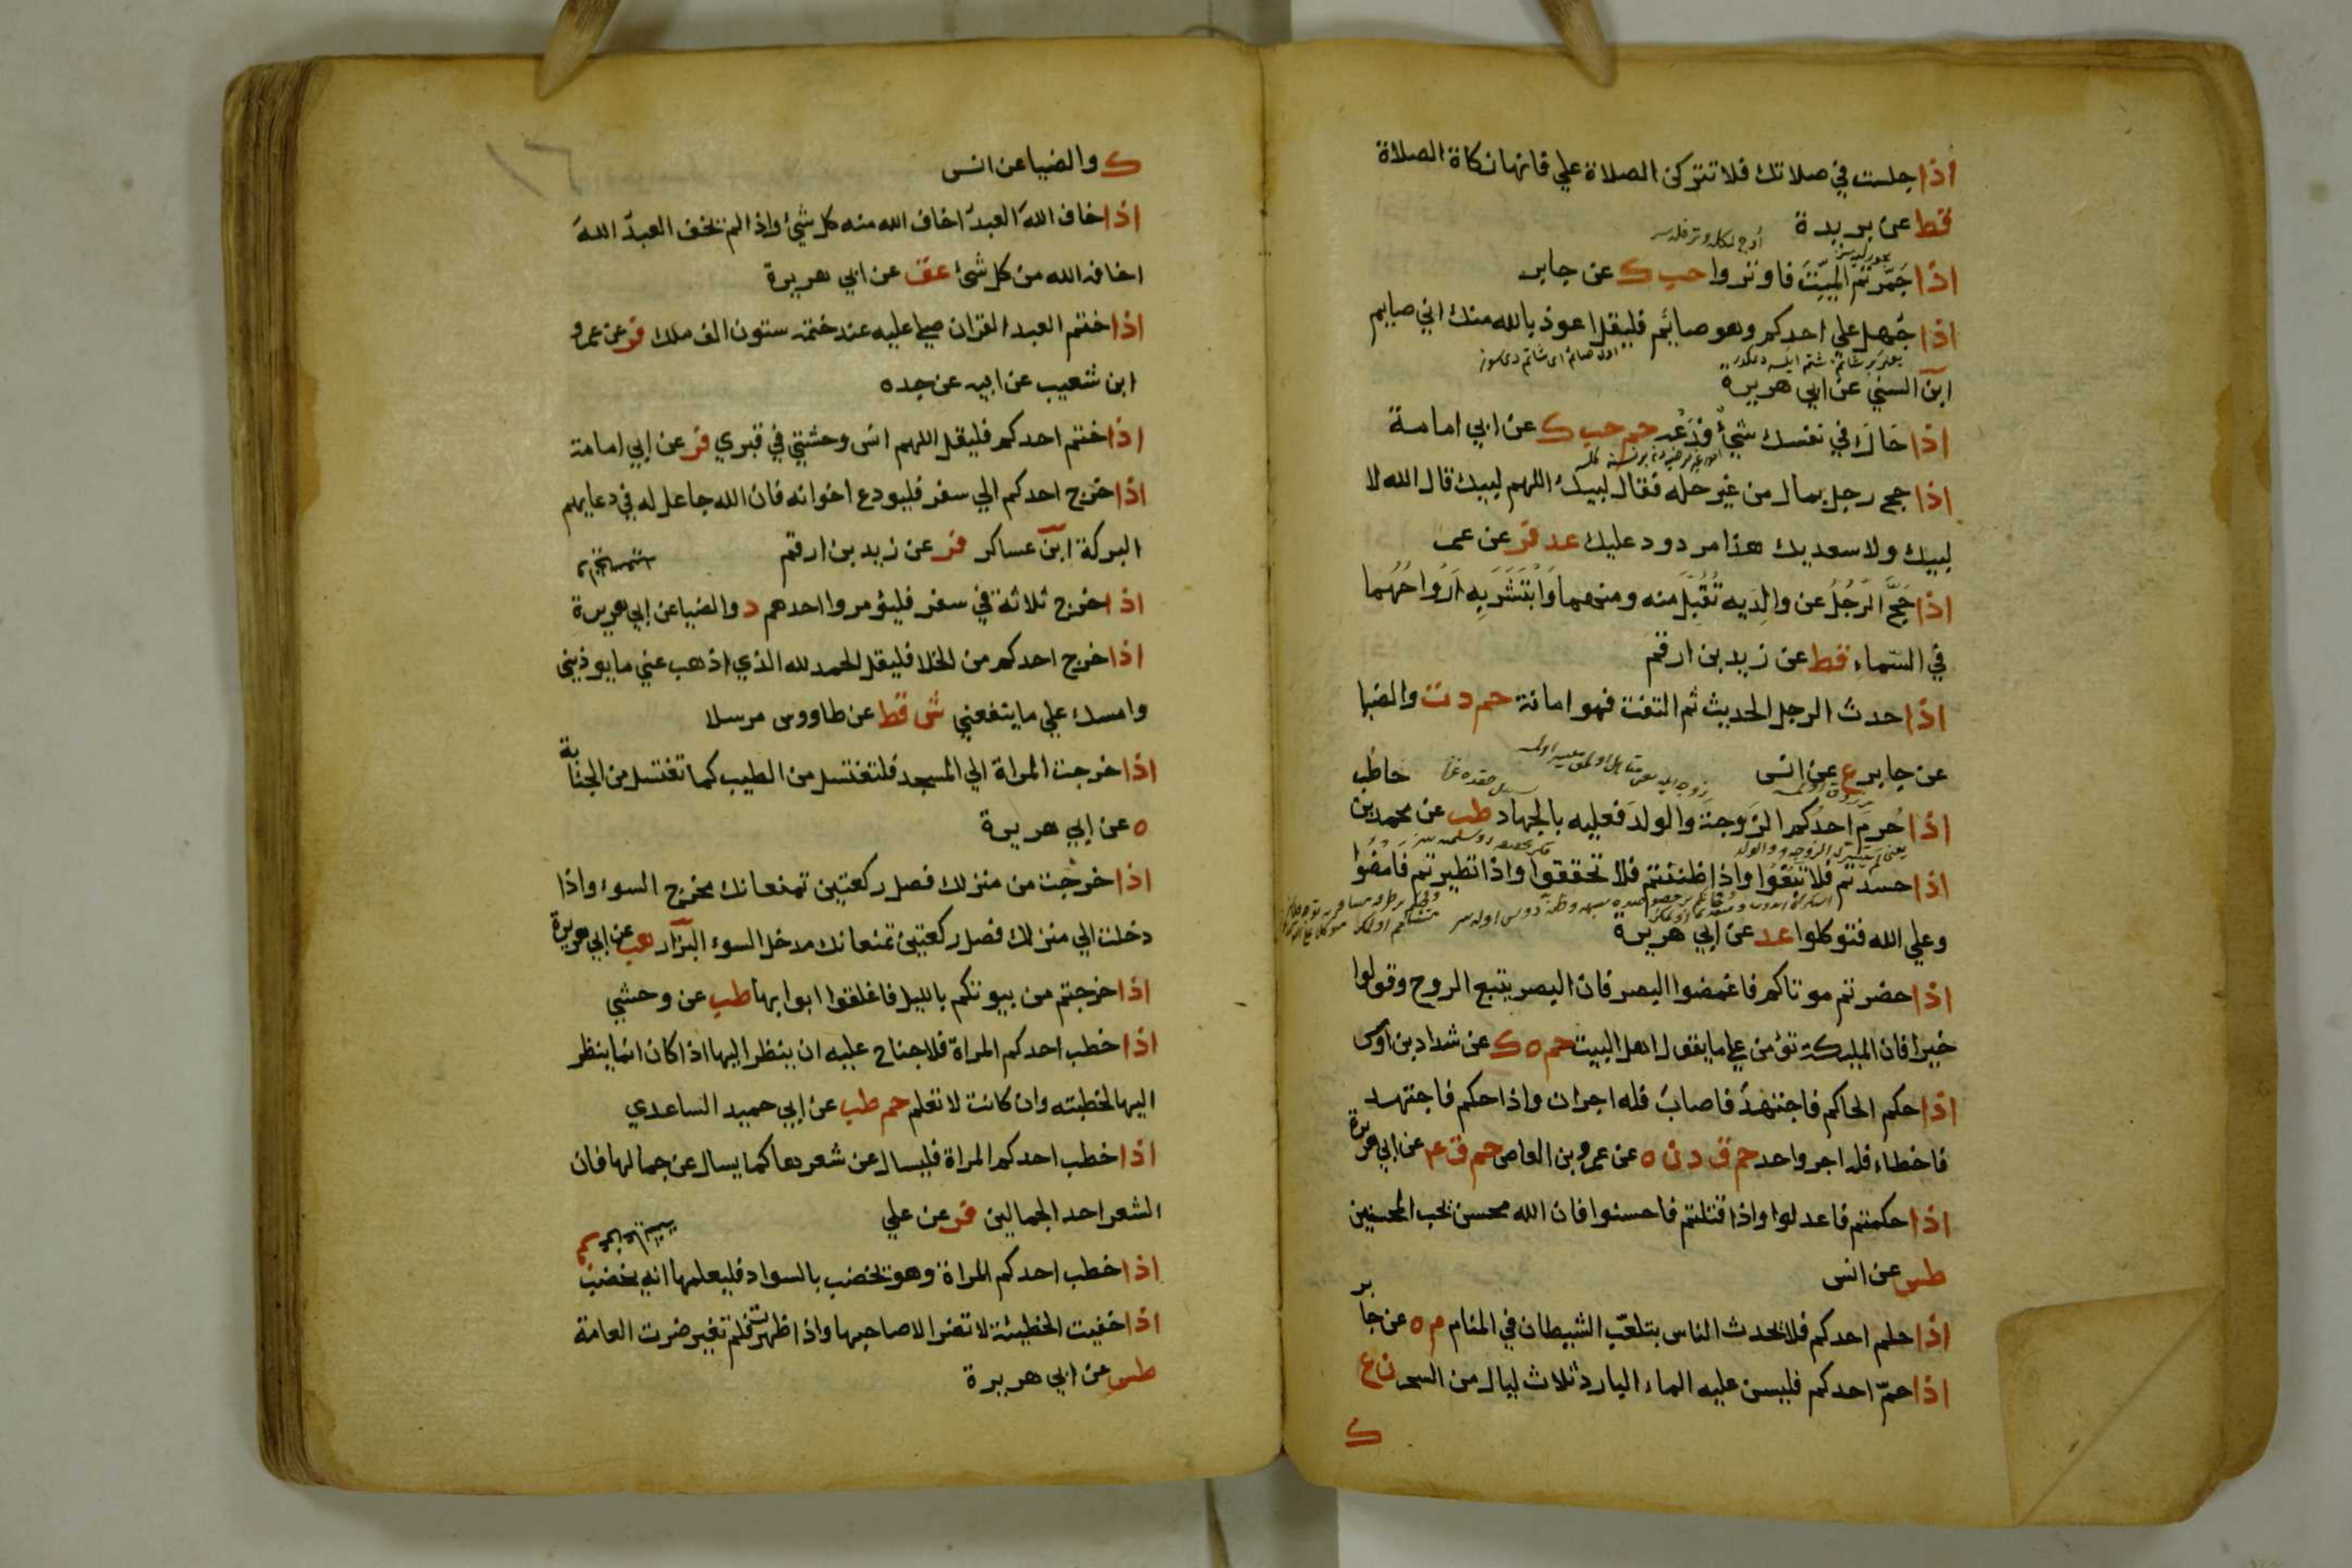 اذا جلست في صلاتك فلا تتركن الصلاة علي فانها زكاة الصلاة
قط عن بريدة
اذا جَمّرتم الميّتَ فاوتروا حب ك عن جابر
اذا جُهل علي احدكم وهو صايم فليقل اعوذ بالله منك اني صايم
ابن السني عن ابي هريرة
اذا حَاكَ في نفسك شيءٌ فدَعْه حم حب ك عن ابي امامة
اذا حج رجل بمال من غير حله فقال لبيك اللهم لبيك قال الله لا
لبيك ولا سعديك هذا مردود عليك عد فر عن عمر
اذا حَجَّ الرَّجُلُ عن والِدَيه تُقُبّلَ منه ومنهما وَابْتَشَرَ بِه اَرْواحُهُما
في السّماء قط عن زيد بن ارقم
اذا حدث الرجل الحديث ثم التفت فهو امانة حم د ت والضيا
عن جابر ع عن انس
حاطب
اذا حُرِمَ احدُكم الزَوجةَ والولدَ فعليه بالجهاد طب عن محمد بن
اذا حسدتم فلا تَبْغُوا واذا ظننتم فلا تحققوا واذا تطيرتم فامضوا
وعلي الله فتوكلوا عد عن ابي هريرة
اذا حضرتم موتاكم فاغمضوا البصر فان البصر يتبع الروح وقولوا
خيرا فان المليكة تؤمن علي ما يقول اهل البيت حم ه ك عن شداد بن اوس
اذا حكم الحاكم فاجتهدَ فاصابَ فله اجران واذا حكم فاجتهد
فاخطاء فله اجر واحد حم ق د ن ه عن عمرو بن العاص حم ق ٤ عن ابي هريرة
اذا حكمتم فاعدلوا واذا قتلتم فاحسنوا فان الله محسن يحب المحسنين
طس عن انس
اذا حلم احدكم فلا يحدث الناس بتلعّب الشيطان في المنام م ه عن جابر
اذا حمّ احدكم فليسن عليه الماء البارد ثلاث ليال من السحر ن ع
ك
١٦
ك والضيا عن انس
اذا خاف اللهَ العبدُ اخاف الله منه كل شيء واذا لم يخف العبدُ اللهَ
اخافه الله من كل شيء عق عن ابي هريرة
اذا ختم العبد القران صلي عليه عند ختمه ستون الف ملك فر عن عمرو
ابن شعيب عن ابيه عن جده
اذا ختم احدكم فليقل اللهم انس وحشتي في قبري فر عن ابي امامة
اذا خرج احدكم الي سفر فليودع اخوانه فان الله جاعل له في دعايهم
البركة ابن عساكر فر عن زيد بن ارقم
اذا خرج ثلاثة في سفر فليؤمروا احدهم د والضيا عن ابي هريرة
اذا خرج احدكم من الخلا فليقل الحمد لله الذي اذهب عني ما يوذيني
وامسك علي ما ينفعني ش قط عن طاووس مرسلا
اذا خرجت المراة الي المسجد فلتغتسل من الطيب كما تغتسل من الجنابة
ه عن ابي هريرة
اذا خرجت من منزلك فصل ركعتين تمنعانك مخرج السوء واذا
دخلت الي منزلك فصل ركعتين تمنعانك مدخل السوء البزار هب عن ابي هريرة
اذا خرجتم من بيوتكم بالليل فاغلقوا ابوابها طب عن وحشي
اذا خطب احدكم المراة فلا جناح عليه ان ينظر اليها اذا كان انما ينظر
اليها لخطبته وان كانت لا تعلم حم طب عن ابي حميد الساعدي
اذا خطب احدكم المراة فليسال عن شعرها كما يسال عن جمالها فان
الشعر احد الجمالين فر عن علي
اذا خطب احدكم المراة وهو يخضب بالسواد فليعلمها انه يخضب
اذا خفيت الخطيئة لا تضر الا صاحبها واذا ظهرت فلم تغير ضرت العامة
طس عن ابي هريرة